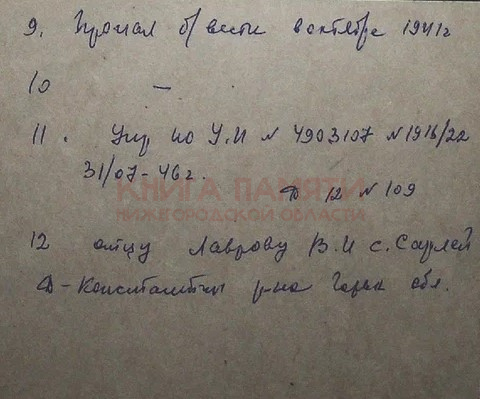 9. Пропал б/вести в октябре 1941 г
10 —
11. Упр по У.И N 4903107 N 1916/22
31/07-46 г.
Ф 12 N 109
КНИГА ПАМЯТИ
НИЖЕГОРОДСКОЙ ОБЛАСТИ
12 отцу Лаврову В.И с. Сарлей
Д-Константин р-на Горьк обл.